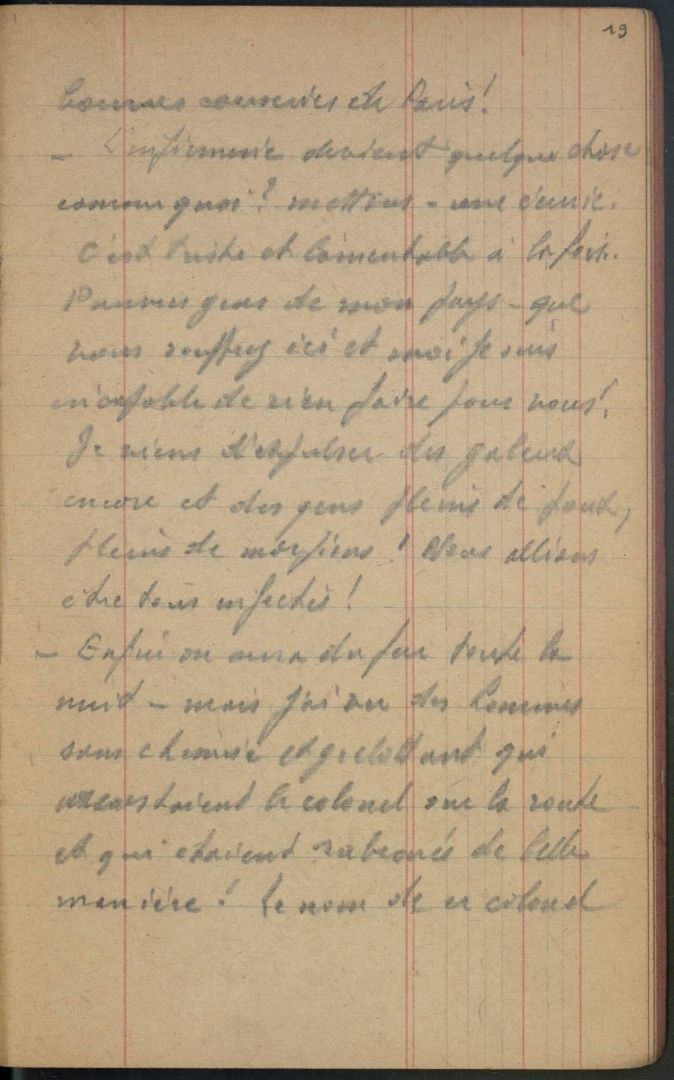 19
bonnes causeries de Paris!
- L'infirmerie devient quelque chose
comme quoi? mettons - une écurie.
C'est triste et lamentable à la fois.
Pauvres gens de mon pays - que
vous souffrez ici et moi je suis
incapable de rien faire pour vous!
Je viens d'expulser des galeux
encore et des gens pleins de poux,
pleins de morpions! Nous allions
être tous infectés!
- Enfin on aura du feu toute la
nuit - mais j'ai vu des hommes
sans chemise et grelottant qui
accostaient le colonel sur la route
et qui étaient rabroués de belle
manière! Le nom de ce colonel